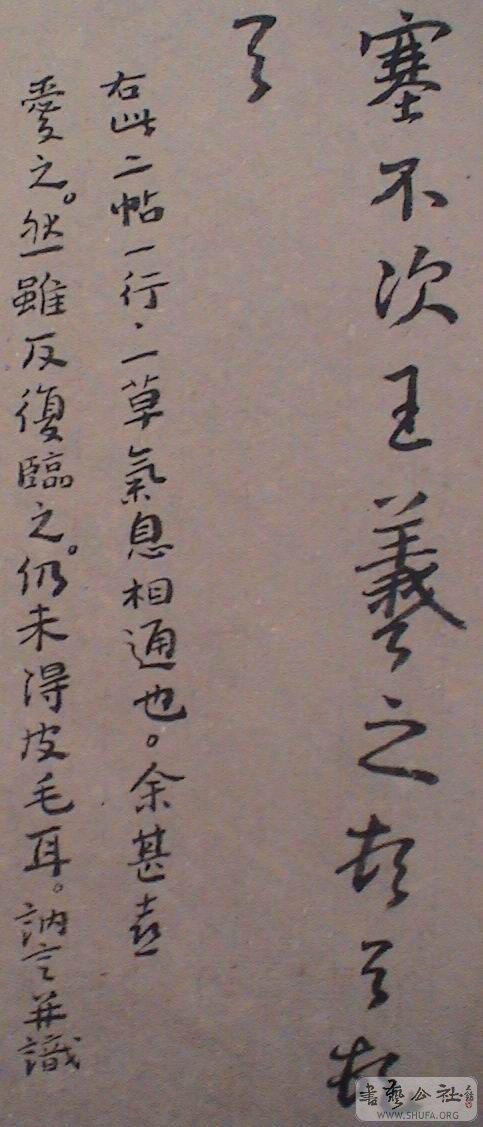 塞不次王羲之頓首頓
首
右此二帖一行、一草氣息相通也。余甚喜
愛之。然雖反復臨之。仍未得皮毛耳。訥言並識
書藝公社
WWW.SHUFA.ORG